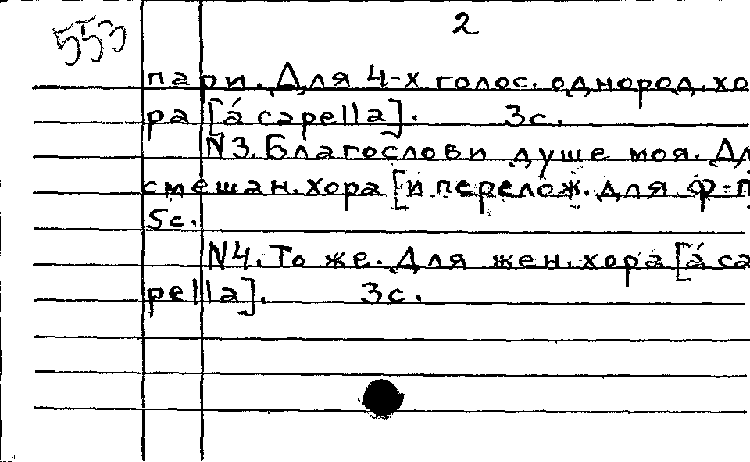 553
2
пари. Для 4-х голос. однород. хо
ра [á capella]. 3с.
N3. Благослови душе моя. Дл
смешан. хора [и перелож. для ф-п
5с.
N4. То же. Для жен. хора [á ca
pella]. 3с.